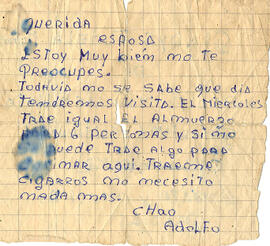 Querida
esposa
Estoy muy bien no te
preocupes.
Todavia no se sabe que dia
tendremos visita. El miercoles
trae igual el almuerzo
6 personas y si no
puede trae algo para
aqui. Traeme
cigarros no necesito
nada mas.
Chao
Adolfo